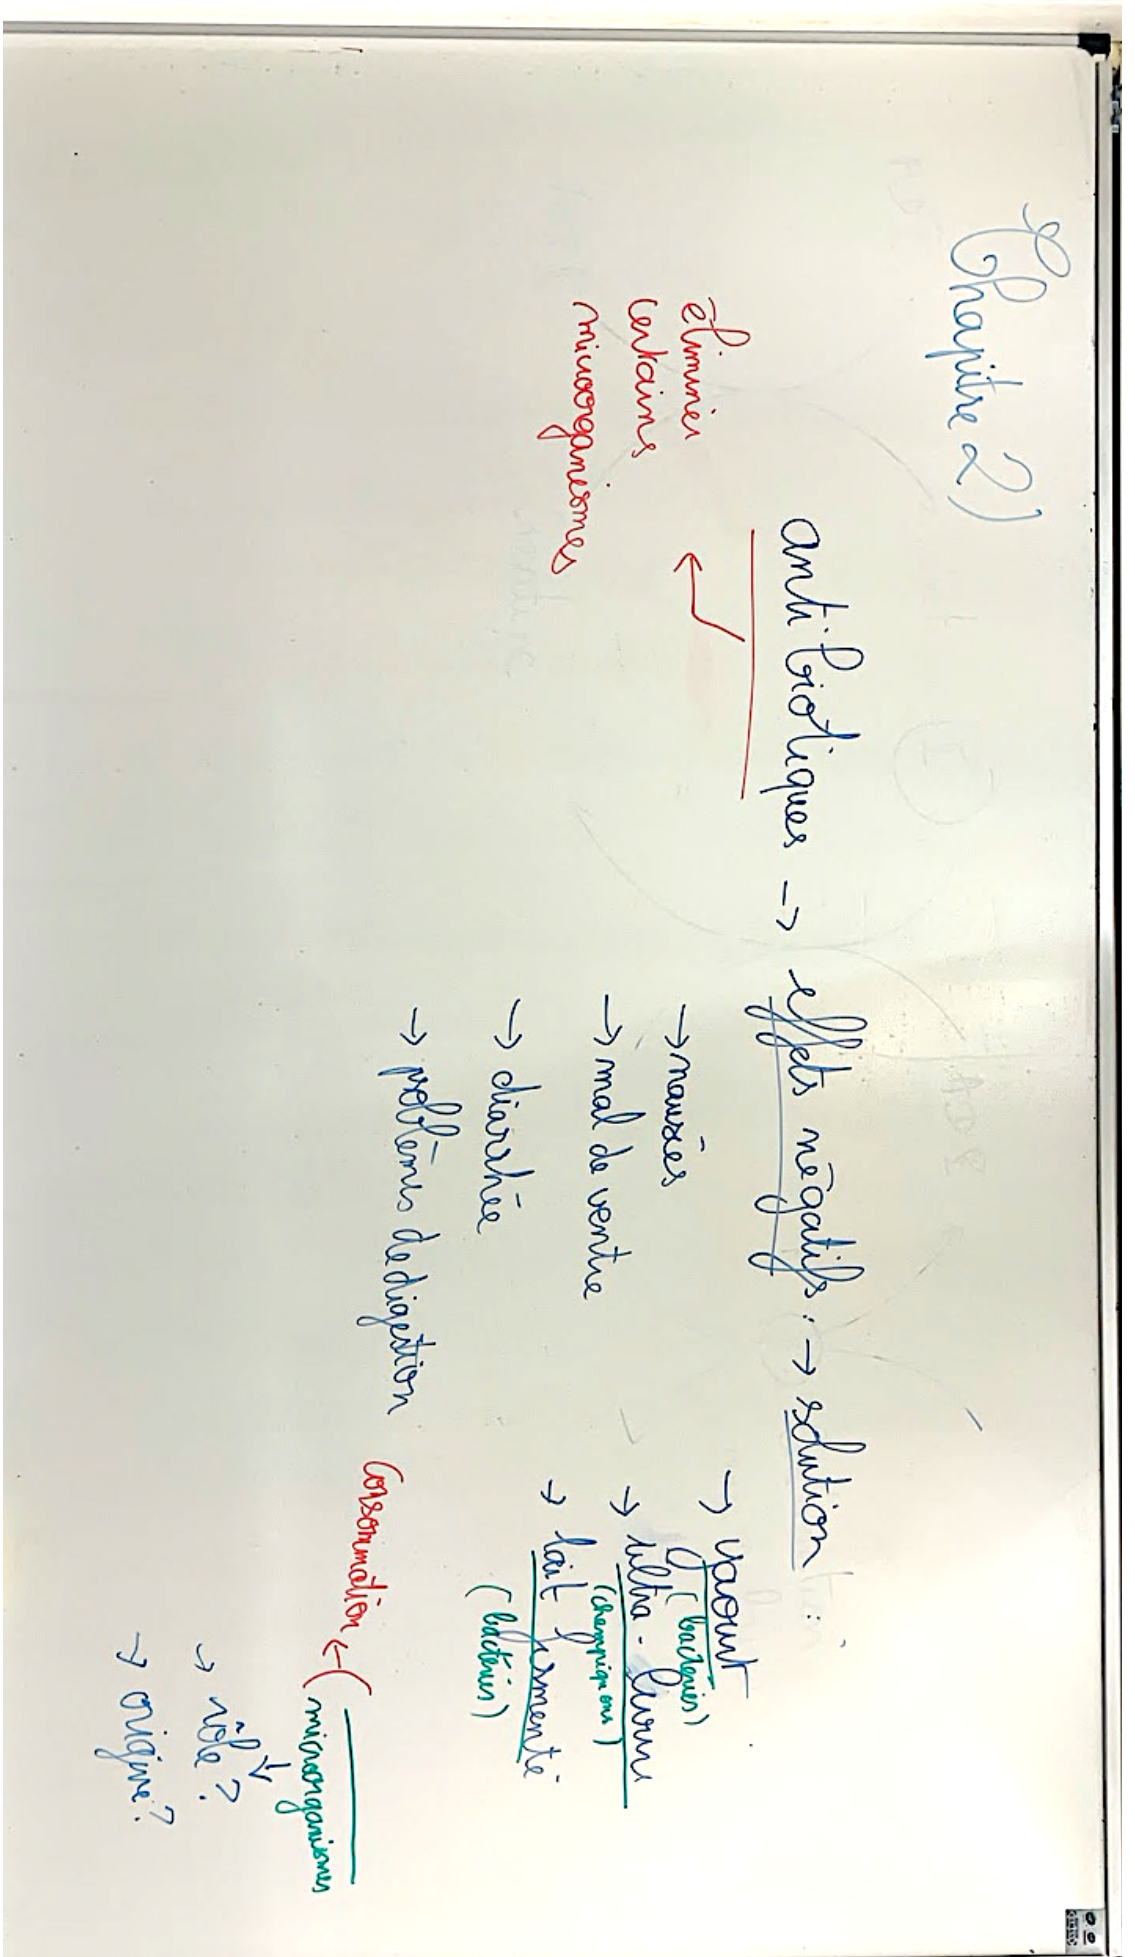 Chapitre 2)
antibiotiques → effets négatifs : → solution
éliminer
certains
microorganismes
→ nausées
→ mal de ventre
→ diarrhée
→ problèmes de digestion
→ yaourt
(bactéries)
→ ultra-levure
(champignons)
→ lait fermenté
(bactéries)
Consommation ←
microorganismes
→ rôle ?
→ origine ?